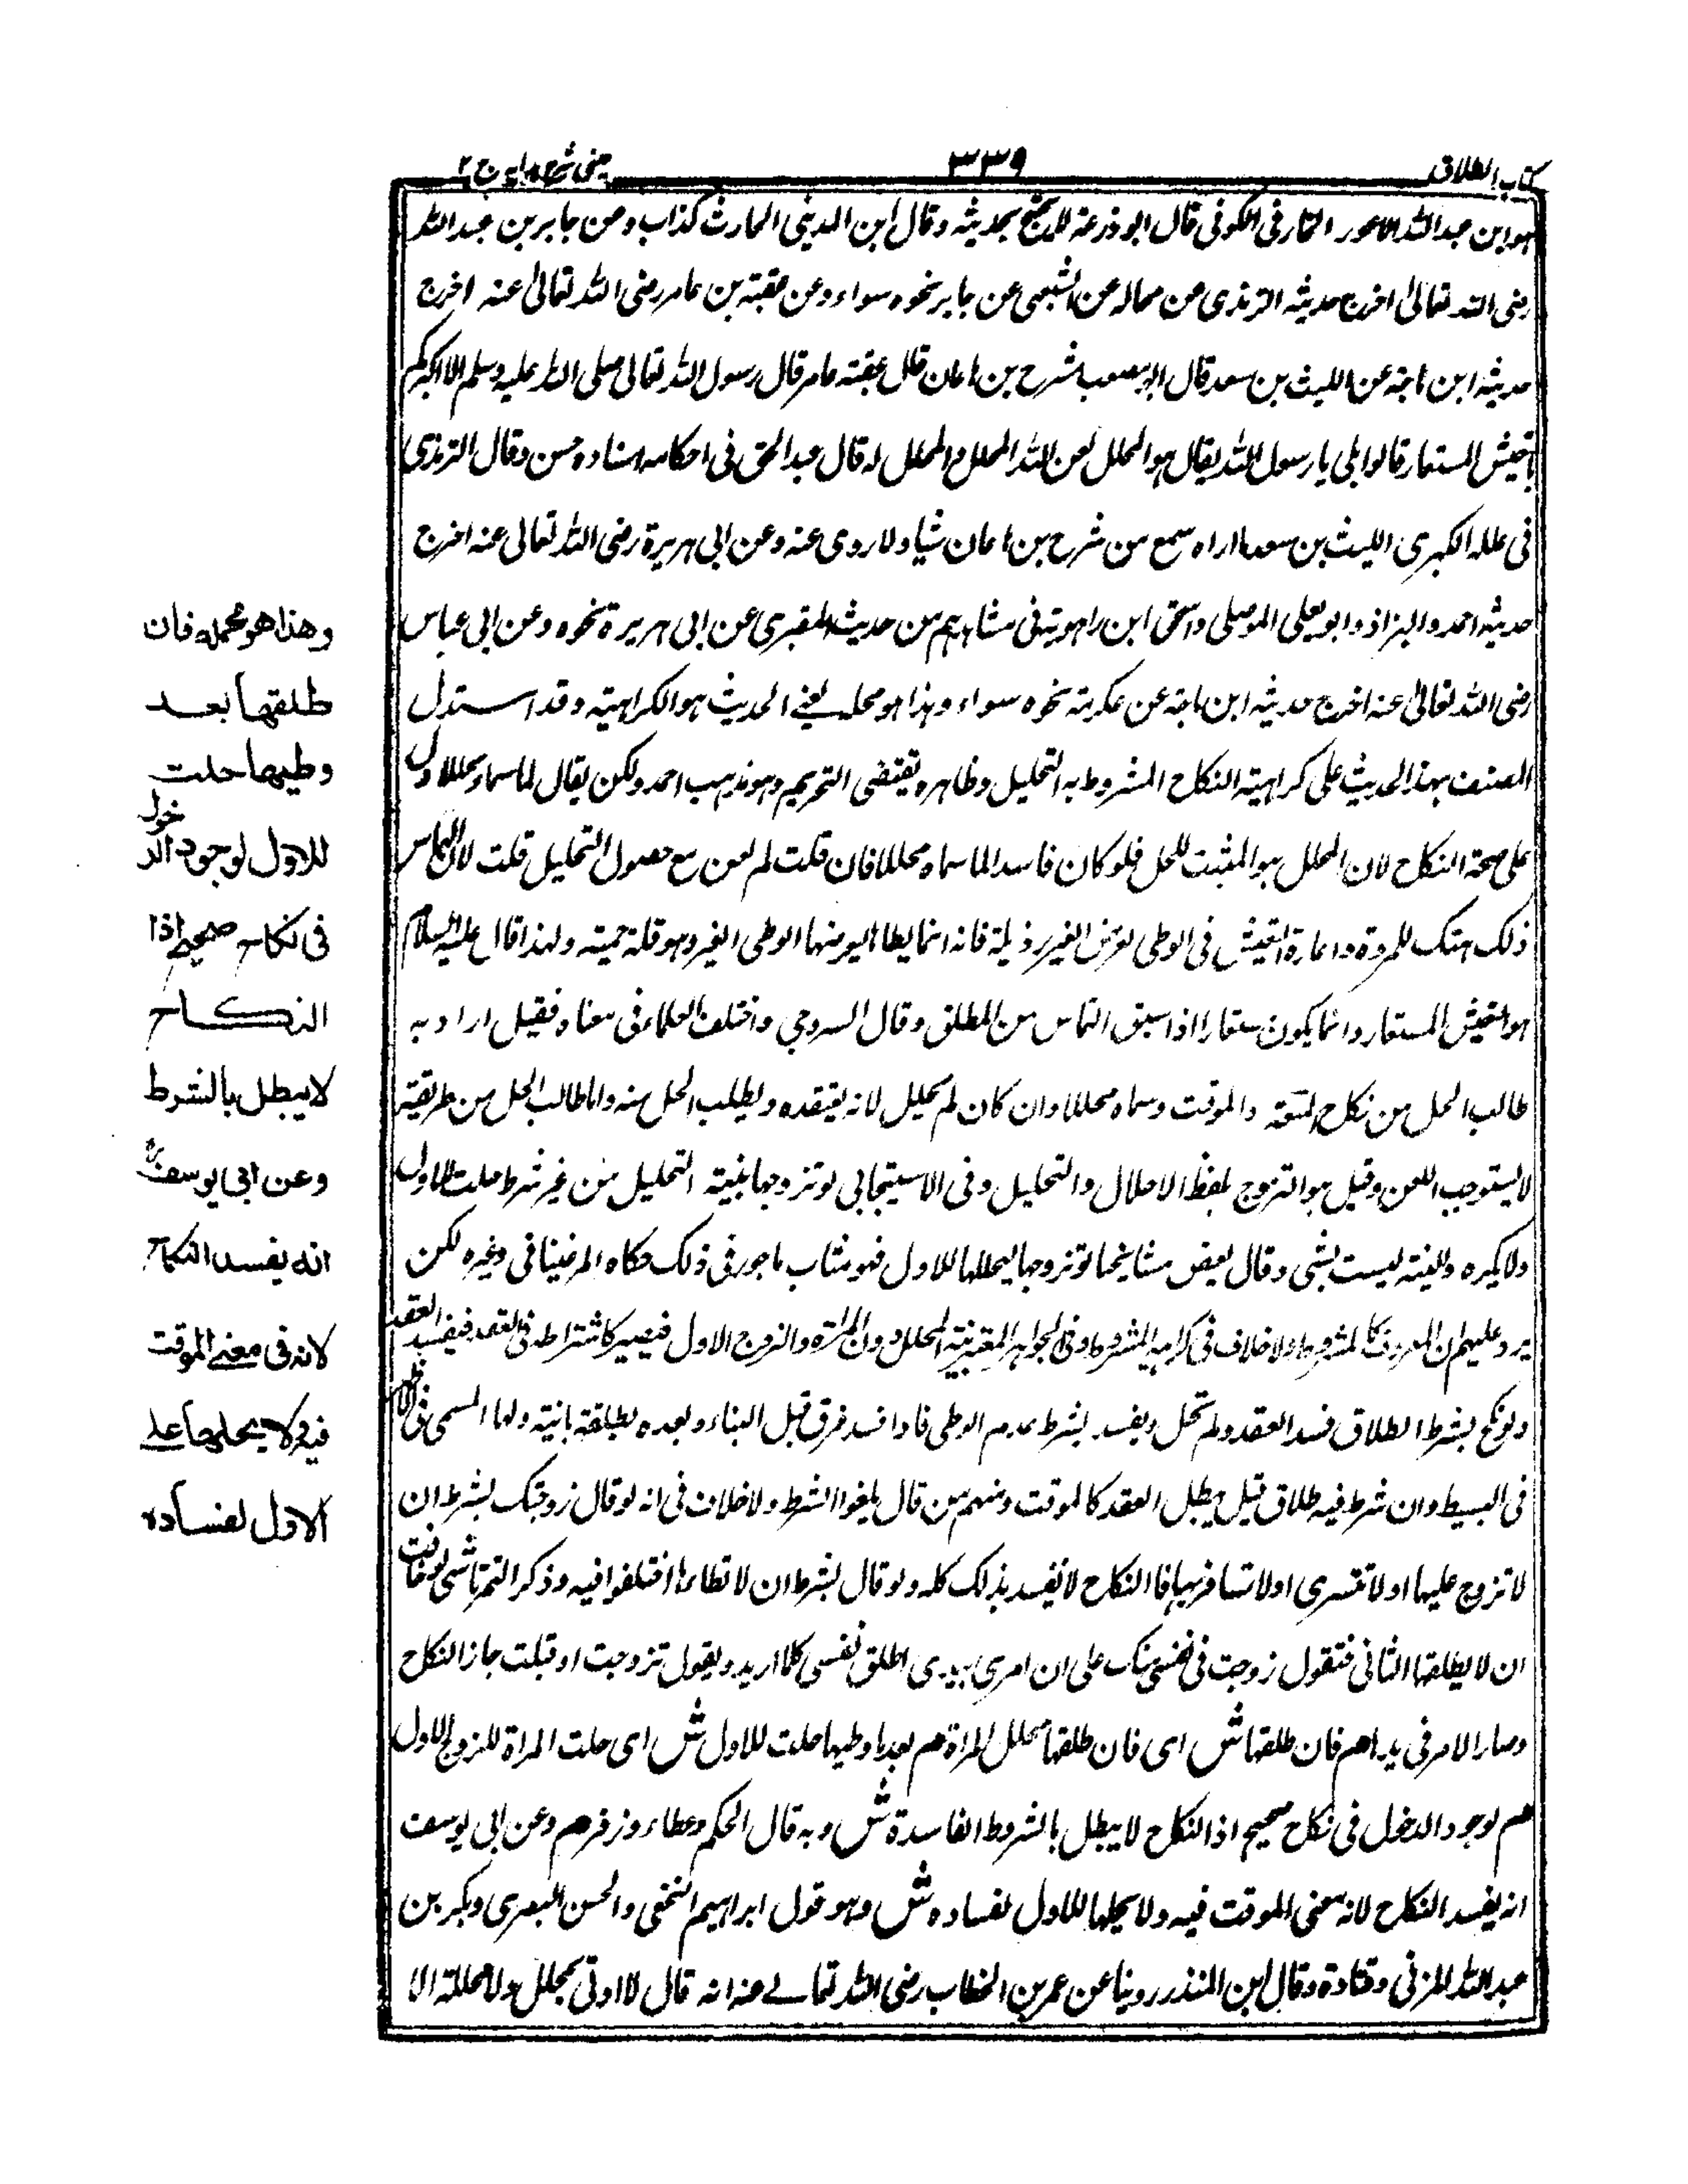 كتاب الطلاق
٣٣٩
عینی شرح هدایه ج ٢
هو ابن عبد الله الاعور الحارفى الكوفى قال ابو زرعة لا يحتج بحديثه وقال ابن المدينى الحارث كذاب وعن جابر بن عبد الله
رضى الله تعالى اخرج حديثه الترمذى عن مجالد عن الشعبى عن جابر نحوه سواء وعن عقبة بن عامر رضى الله تعالى عنه اخرج
حديثه ابن ماجة عن الليث بن سعد قال ابو مصعب مشرح بن هاعان قال عقبة عامر قال رسول الله تعالى صلى الله عليه وسلم الا اخبركم
بالتيس المستعار قالوا بلى يا رسول الله يقال هو المحلل لعن الله المحلل والمحلل له قال عبد الحق فى احكامه اسناده حسن وقال الترمذى
فى علله الكبرى الليث بن سعد ما اراه سمع من مشرح بن هاعان شيا ولا روى عنه وعن ابى هريرة رضى الله تعالى عنه اخرج
حديثه احمد والبزاز وابو يعلى الموصلى واسحق ابن راهويه فى مسانيدهم من حديث المقبرى عن ابى هريرة نحوه وعن ابى عباس
رضى الله تعالى عنه اخرج حديثه ابن ماجة عن عكرمة نحوه سواء وهذا هو محله يعنى الحديث هو الكراهية وقد استدل
المصنف بهذا الحديث على كراهية النكاح المشروط به التحليل وظاهره يقتضى التحريم وهو مذهب احمد ولكن يقال لما سماه محللا دل
على صحة النكاح لان المحلل هو المثبت للحل فلو كان فاسدا لما سماه محللا فان قلت لم لعن مع حصول التحليل قلت لان التماس
ذلك هتك للمروة واعارة التيس فى الوطى لغرض الغير رذيلة فانه انما يطاها ليعرضها لوطى الغير وهو قلة حمية ولهذا قال عليه السلام
هو التيس المستعار وانما يكون مستعارا اذا سبق التماس من المطلق وقال السروجى واختلف العلماء فى معناه فقيل اراد به
طالب الحل من نكاح المتعة والموقت وسماه محللا وان كان لم يحلل لانه يعتقده ويطلب الحل منه واما طالب الحل من طريقته
لا يستوجب اللعن وقيل هو التزوج بلفظ الاحلال والتحليل وفى الاسبيجابى لو تزوجها بنية التحليل من غير شرط حلت للاول
ولا يكره والنية ليست بشى وقال بعض مشايخنا لو تزوجها ليحللها للاول فهو مثاب ماجور فى ذلك حكاه المرغينانى وغيره لكن
يرد عليهم ان المعروف كالمشروط ولا خلاف فى كراهية المشروط وفى الجواهر المعتبر نية المحلل دون المراة والزوج الاول فيصير كاشتراطه فى العقد فيفسد العقد
ولو نكح بشرط الطلاق فسد العقد ولم تحل ويفسد بشرط عدم الوطى فاذا فسد فرق قبل البناء وبعده بطلقة بائنة ولها المسمى
فى البسيط وان شرط فيه طلاق قيل يبطل العقد كالموقت ومنهم من قال يلغو الشرط ولا خلاف فى انه لو قال زوجتك بشرط ان
لا تزوج عليها او لا تتسرى او لا تسافر بها فالنكاح لا يفسد بذلك كله ولو قال بشرط ان لا تطاها اختلفوا فيه وذكر التمرتاشى لو خافت
ان لا يطلقها الثانى فتقول زوجت نفسى منك على ان امرى بيدى اطلق نفسى كلما اريد ويقول تزوجت او قبلت جاز النكاح
وصار الامر فى يدها هم فان طلقها ش اى فان طلقها محلل المراة هم بعد ما وطيها حلت للاول ش اى حلت المراة للزوج الاول
هم لوجود الدخول فى نكاح صحيح اذ النكاح لا يبطل بالشروط الفاسدة ش وبه قال الحكم وعطاء وزفر هم وعن ابى يوسف
انه يفسد النكاح لانه معنى الموقت فيه ولا يحلها للاول لفساده ش وهو قول ابراهيم النخعى والحسن البصرى وبكر بن
عبد الله المزنى وقتادة وقال ابن المنذر روينا عن عمر بن الخطاب رضى الله تعالى عنه انه قال لا اوتى بمحلل ولا محللة الا
وهذا هو محمله فان
طلقها بعد
وطيها حلت
للاول لوجود الدخول
فى نكاح صحيح اذا
النكاح
لا يبطل بالشرط
وعن ابى يوسفؒ
انه يفسد النكاح
لانه فى معنى الموقت
فيه ولا يحلها على
الاول لفساده